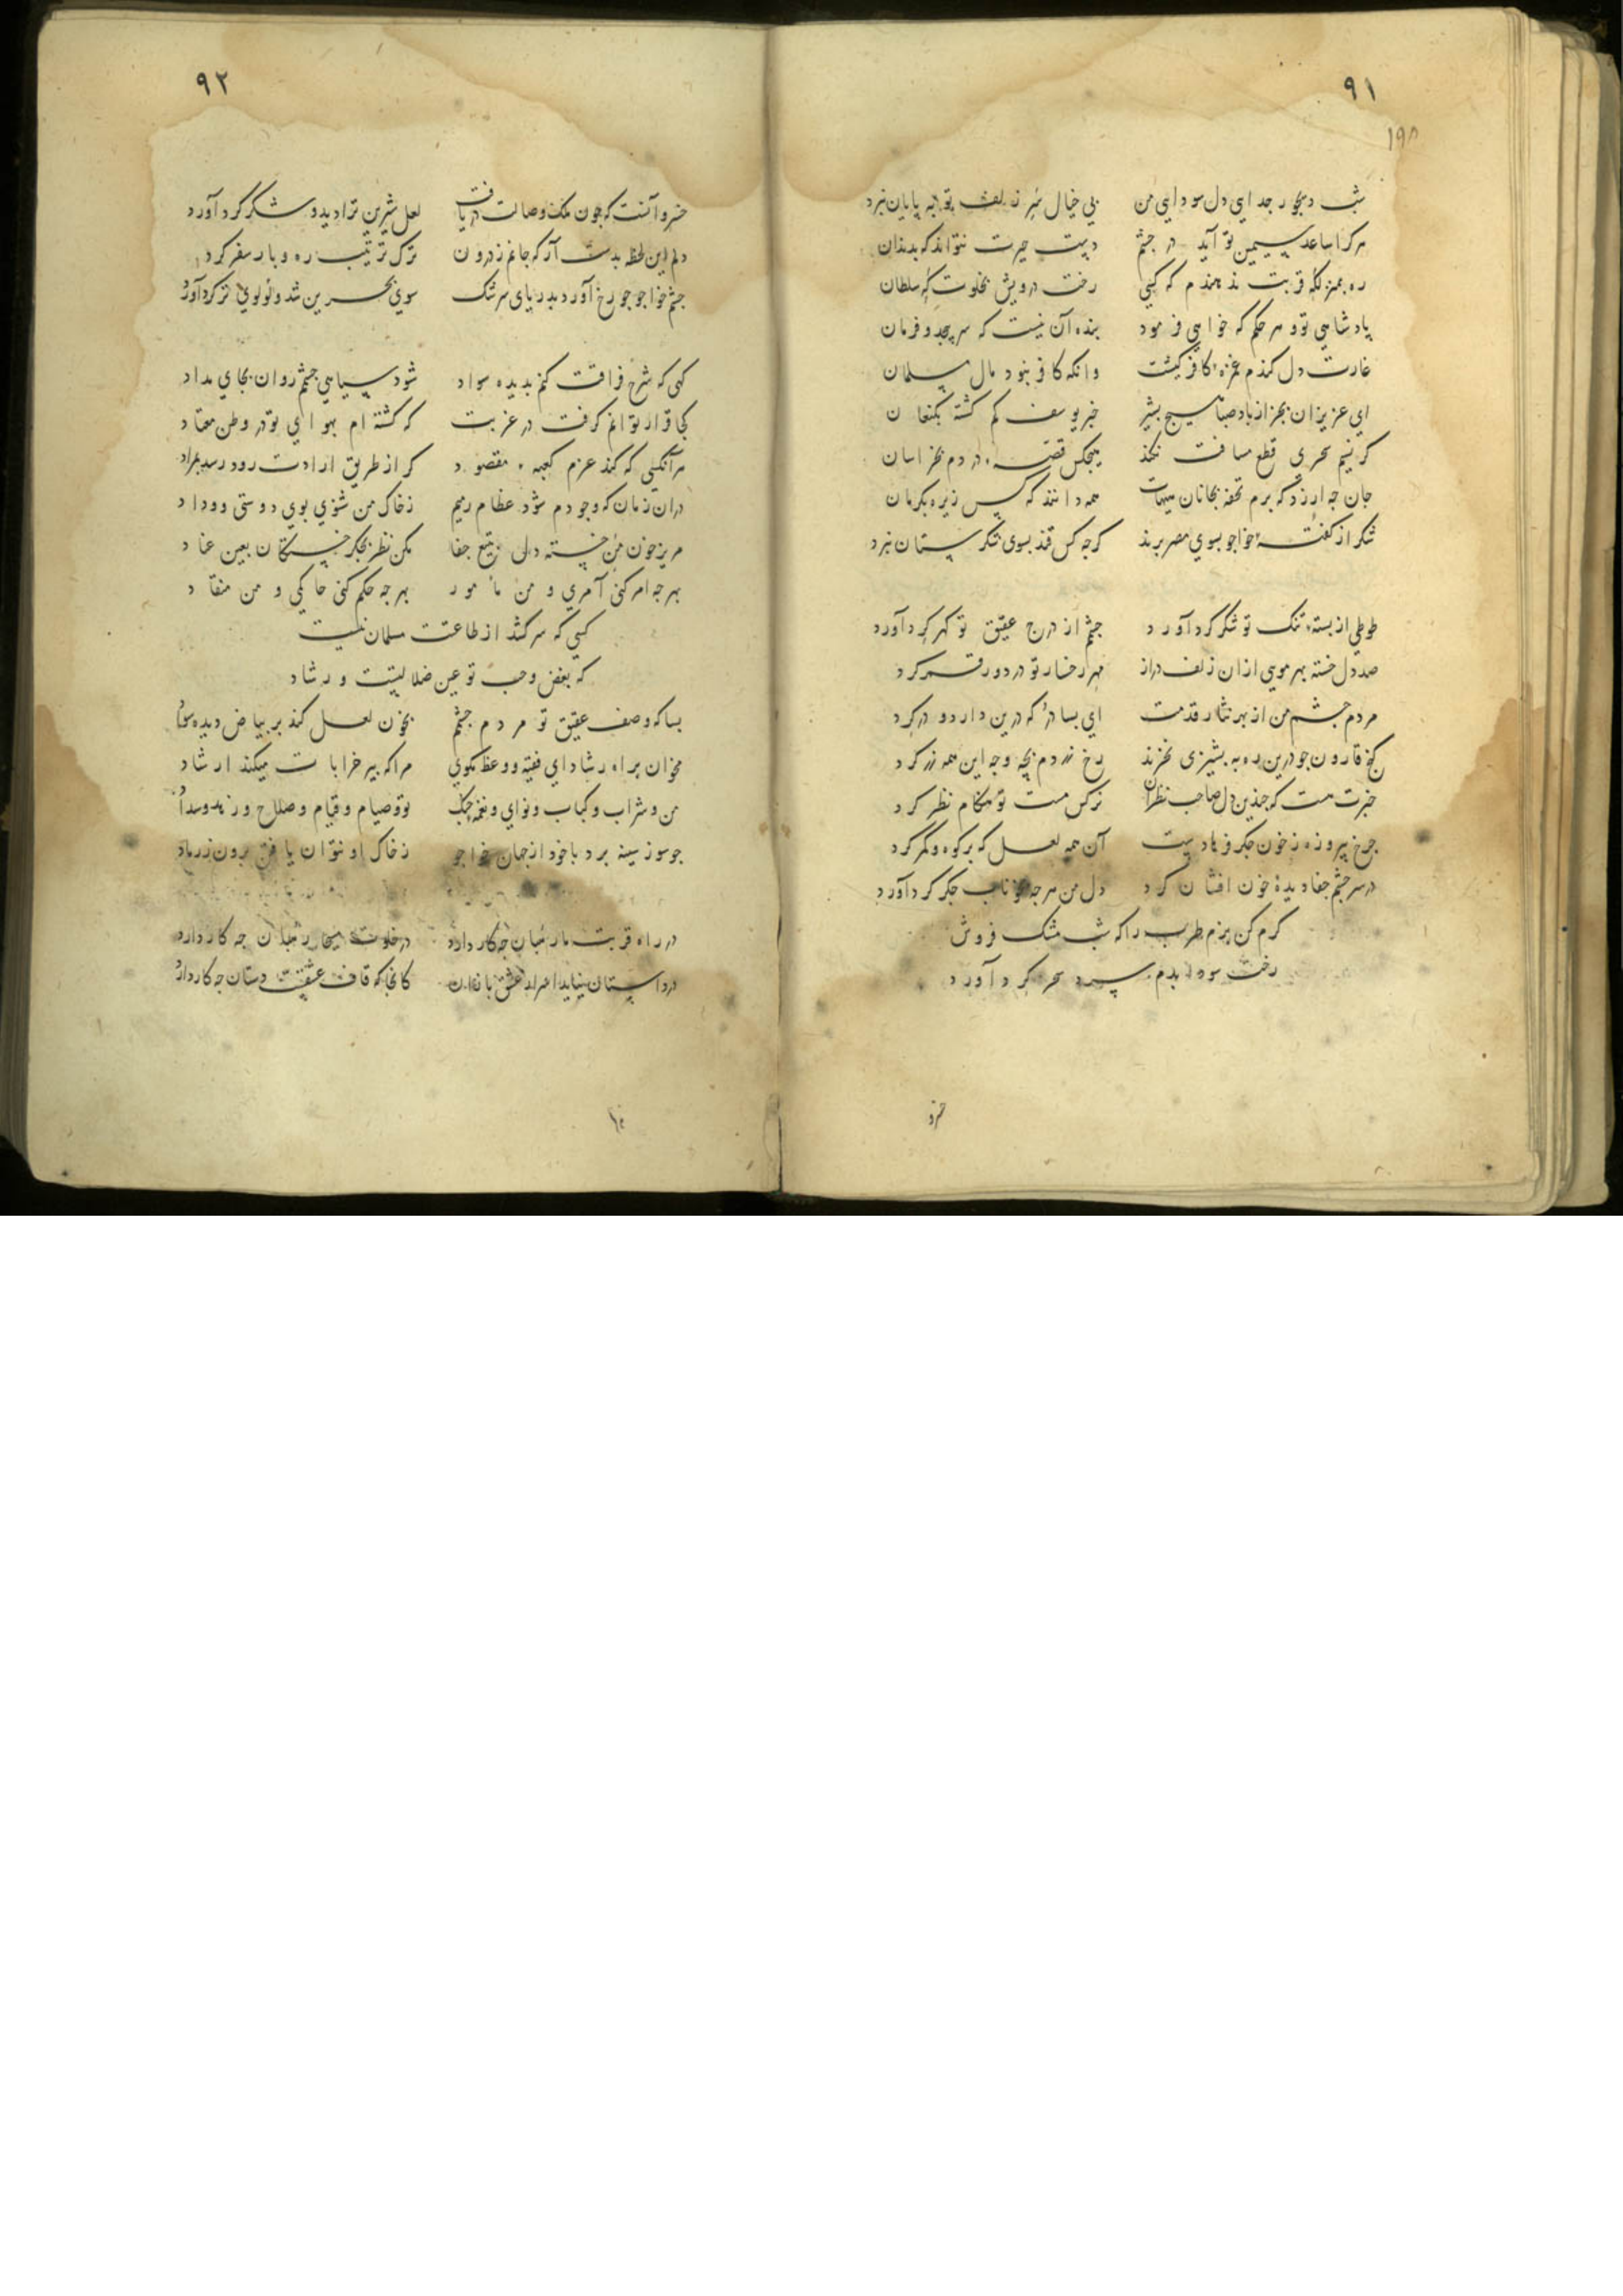 ۹۱
۱۹۸
شب دیجور جدایی دل سودایی من بی خیال سر زلف تو به پایان نبرد
هر کرا ساعد سیمین تو آید در چشم دست حیرت نتواند که بدندان
ره بمنزلگه قربت ندهندم که کسی رخت درویش بخلوت گه سلطان
پادشاهی تو و هر حکم که خواهی فرمود بنده آن نیست که سر پیچد و فرمان
غارت دل کندم غمزه کافر کیشت وانکه کافر نبود مال مسلمان
ای عزیزان بجز از باد صبا هیچ بشیر خبر یوسف گم گشته بکنعان
گر نسیم سحری قطع مسافت نکند هیچکس قصه دردم بخراسان
جان چه ارزد که برم تحفه بجانان هیهات همه دانند که کس زیره بکرمان
شکر از گفته خواجو بسوی مصر برند گرچه کس قند بسوی شکرستان نبرد
طوطی از پسته تنگ تو شکر گرد آورد چشم از درج عقیق تو گهر گرد آورد
صد دل خسته بهر مویی ازان زلف دراز مهر رخسار تو در دور قمر کرد
مردم چشم من از بهر نثار قدمت ای بسا در که درین دار دو در کرد
گنج قارون چو درین ره به پشیزی نخرند رخ زردم بچه وجه این همه زر کرد
خبرت هست که چندین دل صاحب نظران نرگس مست تو هنگام نظر کرد
چرخ پیروزه ز خون جگر فرهادست آن همه لعل که بر کوه و کمر کرد
در سر چشم جفا دیده خون افشان کرد دل من هرچه بخوناب جگر گرد آورد
گرم کن بزم طرب را که شب مشک فروش
رخت سودا بدم سرد سحر گرد آورد
خسرو
۹۲
خسرو آنست که چون ملک وصالت دریافت لعل شیرین ترا دید و شکر گرد آورد
دلم این لحظه بدست آر که جانم ز درون ترک ترتیب ره و بار سفر کرد
چشم خواجو چو رخ آورد بدریای سرشک سوی بحرین شد و لولوی تر گرد آورد
گهی که شرح فراقت کنم بدیده سواد شود سیاهی چشم روان بجای مداد
کجا قرار توانم گرفت در غربت که گشته ام بهوای تو در وطن معتاد
هر آنکسی که کند عزم کعبه مقصود گر از طریق ارادت رود رسد بمراد
دران زمان که وجودم شود عظام رمیم ز خاک من شنوی بوی دوستی و وداد
مریز خون من خسته دل بتیغ جفا مکن نظر بجگر خستگان بعین عناد
بهرچه امر کنی آمری و من مأمور بهرچه حکم کنی حاکمی و من منقاد
کسی که سر کشد از طاعتت مسلمان نیست
که بغض و حب تو عین ضلالتیست و رشاد
بسا که وصف عقیق تو مردم چشم بخون لعل کند بر بیاض دیده سواد
مخوان براه رشاد ای فقیه و وعظ مگوی مرا که پیر خرابات میکند ارشاد
من و شراب و کباب و نوای و نغمه چنگ تو و صیام و قیام و صلاح و زهد و سداد
چو سوز سینه برد با خود از جهان خواجو ز خاک او نتوان یافتن برون ز رماد
در راه قربت ما رهبان چه کار دارد در خلوت مسیحا رهبان چه کار دارد
در داستان نیاید اسرار عشق بازان کانجا که قاف عشقست دستان چه کار دارد